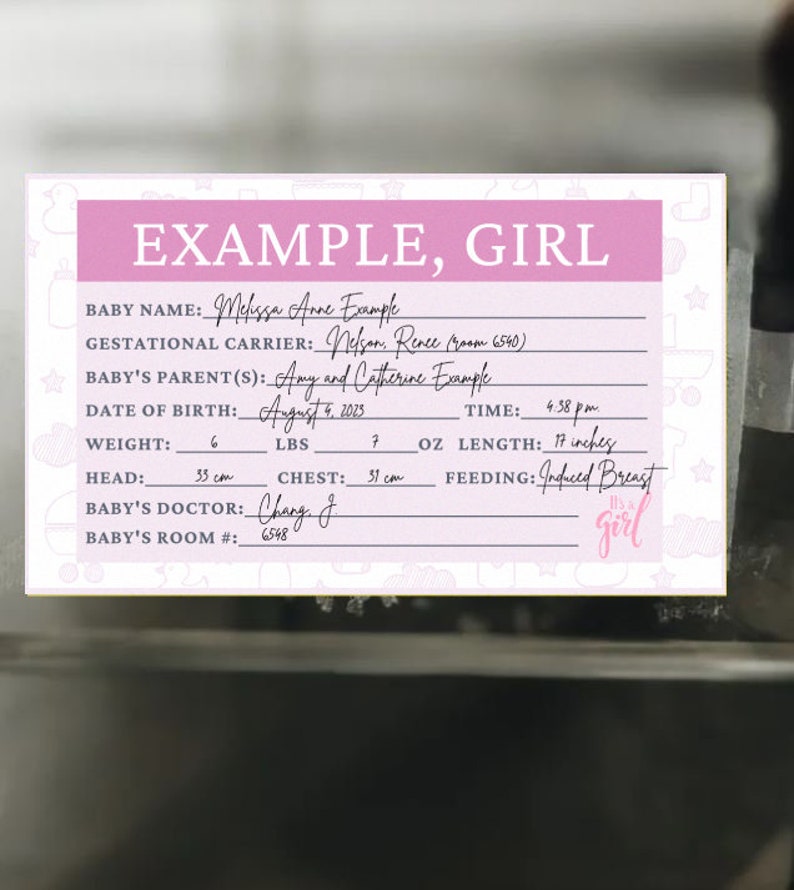 EXAMPLE, GIRL
BABY NAME: Melissa Anne Example
GESTATIONAL CARRIER: Nelson, Renee (room 6540)
BABY'S PARENT(S): Amy and Catherine Example
DATE OF BIRTH: August 4, 2023 TIME: 4:38 pm.
WEIGHT: 6 LBS 7 OZ LENGTH: 17 inches
HEAD: 33 cm CHEST: 31 cm FEEDING: Induced Breast
BABY'S DOCTOR: Chang, J.
BABY'S ROOM #: 6548
It's a
girl